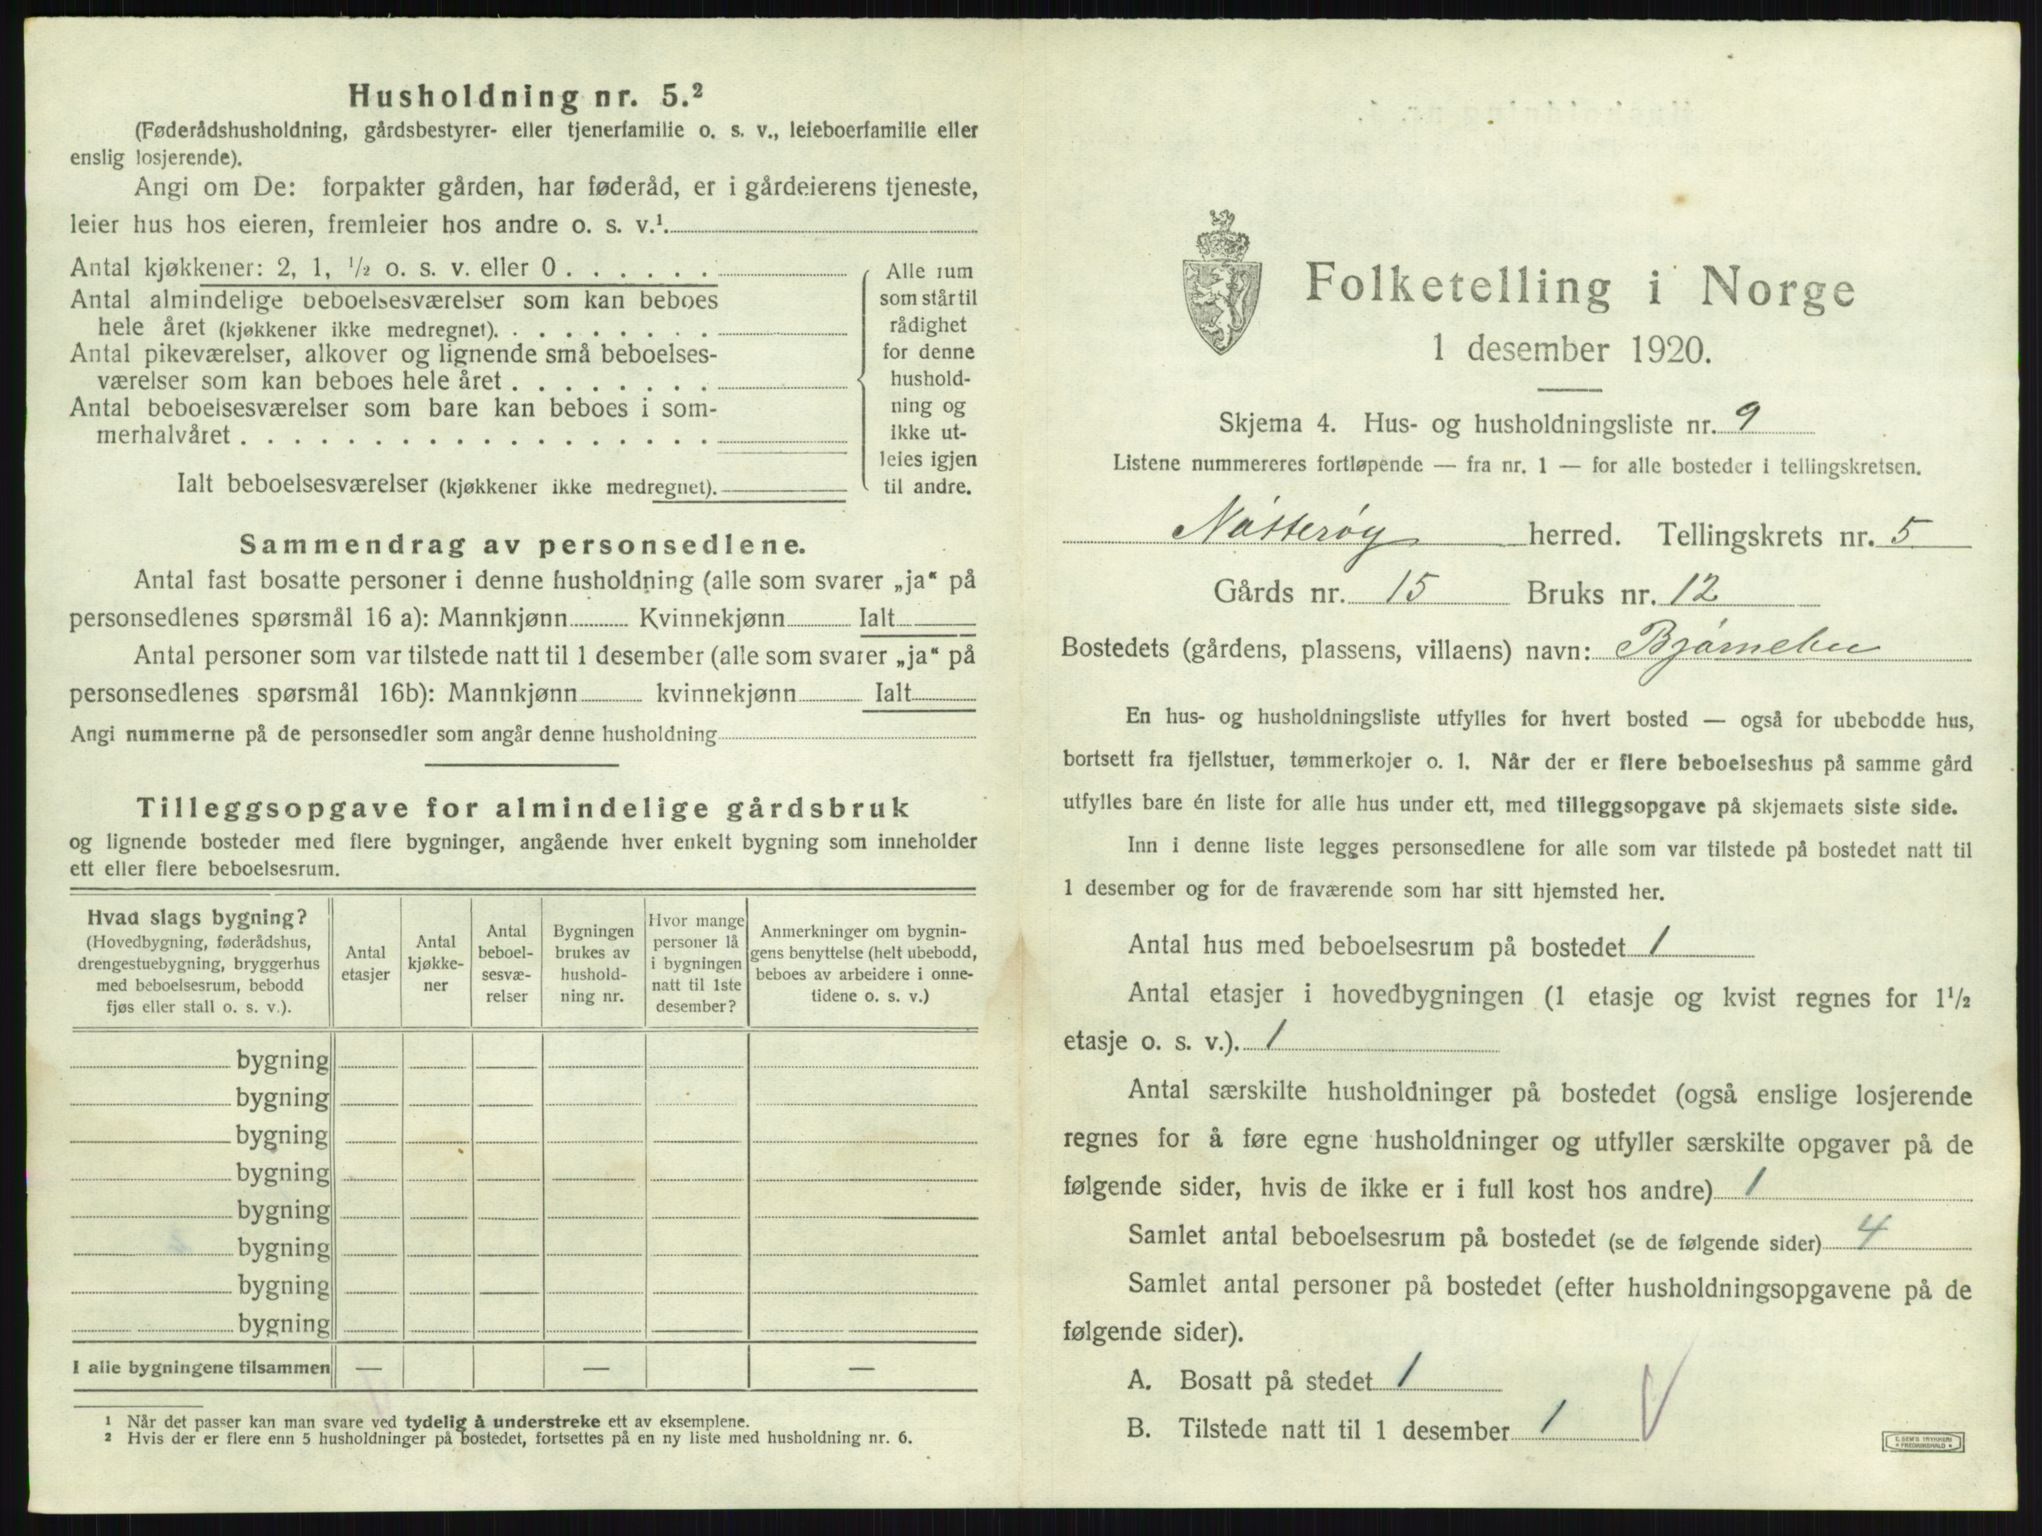 Husholdning nr. 5.²
(Føderådshusholdning, gårdsbestyrer- eller tjenerfamilie o. s. v., leieboerfamilie eller
enslig losjerende).
Angi om De: forpakter gården, har føderåd, er i gårdeierens tjeneste,
leier hus hos eieren, fremleier hos andre o. s. v.¹.
Antal kjøkkener: 2, 1, ½ o. s. v. eller 0 . . . . . .
Antal almindelige beboelsesværelser som kan beboes
hele året (kjøkkener ikke medregnet). . . . . . . . .
Antal pikeværelser, alkover og lignende små beboelses-
værelser som kan beboes hele året . . . . . . . .
Antal beboelsesværelser som bare kan beboes i som-
merhalvåret . . . . . . . . . . . . . . . . . .
Ialt beboelsesværelser (kjøkkener ikke medregnet).
Alle rum
som står til
rådighet
for denne
hushold-
ning og
ikke ut-
leies igjen
til andre.
Sammendrag av personsedlene.
Antal fast bosatte personer i denne husholdning (alle som svarer „ja“ på
personsedlenes spørsmål 16 a): Mannkjønn Kvinnekjønn Ialt
Antal personer som var tilstede natt til 1 desember (alle som svarer „ja“ på
personsedlenes spørsmål 16b): Mannkjønn kvinnekjønn Ialt
Angi nummerne på de personsedler som angår denne husholdning
Tilleggsopgave for almindelige gårdsbruk
og lignende bosteder med flere bygninger, angående hver enkelt bygning som inneholder
ett eller flere beboelsesrum.
Hvad slags bygning?
(Hovedbygning, føderådshus,
drengestuebygning, bryggerhus
med beboelsesrum, bebodd
fjøs eller stall o. s. v.).
Antal
etasjer
Antal
kjøkke-
ner
Antal
beboel-
sesvæ-
relser
Bygningen
brukes av
hushold-
ning nr.
Hvor mange
personer lå
i bygningen
natt til 1ste
desember?
Anmerkninger om bygnin-
gens benyttelse (helt ubebodd,
beboes av arbeidere i onne-
tidene o. s. v.)
bygning
bygning
bygning
bygning
bygning
bygning
bygning
bygning
I alle bygningene tilsammen — — —
¹ Når det passer kan man svare ved tydelig å understreke ett av eksemplene.
² Hvis der er flere enn 5 husholdninger på bostedet, fortsettes på en ny liste med husholdning nr. 6.
Folketelling i Norge
1 desember 1920.
Skjema 4. Hus- og husholdningsliste nr. 9
Listene nummereres fortløpende — fra nr. 1 — for alle bosteder i tellingskretsen.
Nøtterøy herred. Tellingskrets nr. 5
Gårds nr. 15 Bruks nr. 12
Bostedets (gårdens, plassens, villaens) navn: Bjørnebu
En hus- og husholdningsliste utfylles for hvert bosted — også for ubebodde hus,
bortsett fra fjellstuer, tømmerkojer o. l. Når der er flere beboelseshus på samme gård
utfylles bare én liste for alle hus under ett, med tilleggsopgave på skjemaets siste side.
Inn i denne liste legges personsedlene for alle som var tilstede på bostedet natt til
1 desember og for de fraværende som har sitt hjemsted her.
Antal hus med beboelsesrum på bostedet 1
Antal etasjer i hovedbygningen (1 etasje og kvist regnes for 1½
etasje o. s. v.). 1
Antal særskilte husholdninger på bostedet (også enslige losjerende
regnes for å føre egne husholdninger og utfyller særskilte opgaver på de
følgende sider, hvis de ikke er i full kost hos andre) 1
Samlet antal beboelsesrum på bostedet (se de følgende sider) 4
Samlet antal personer på bostedet (efter husholdningsopgavene på de
følgende sider).
A. Bosatt på stedet 1
B. Tilstede natt til 1 desember 1
E. SEM'S TRYKKERI
FREDRIKSHALD